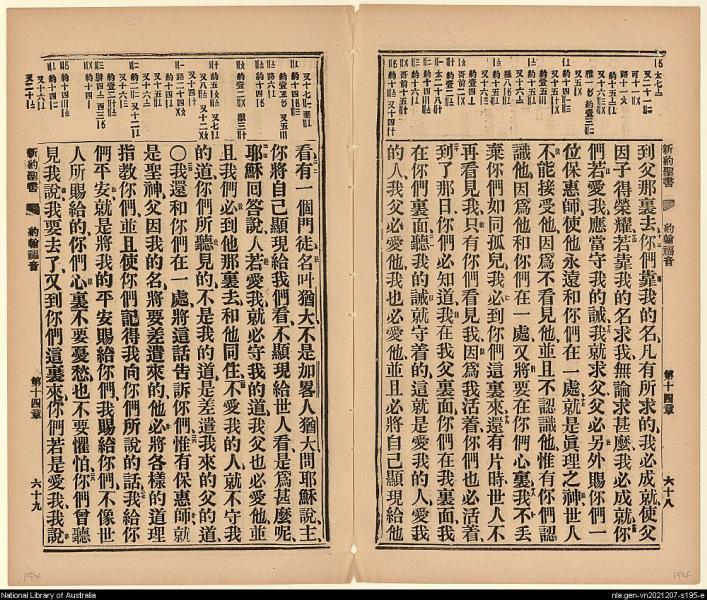 到父那裏去你們靠我的名凡有所求的我必成就使父
因子得榮耀若靠我的名求我無論求甚麽我必成就你
們若愛我應當守我的誡我就求父父必另外賜你們一
位保惠師使他永遠和你們在一處就是眞理之神世人
不能接受他因爲不看見他並且不認識他惟有你們認
識他因爲他和你們在一處又將要在你們心裏我不丟
棄你們如同孤兒我必到你們這裏來還有片時世人不
再看見我只有你們看見我因爲我活着你們也必活着
到了那日你們必知道我在我父裏面你們在我裏面我
在你們裏面聽我的誡就守着的這就是愛我的人愛我
的人我父必愛他我也必愛他並且必將自己顯現給他
新約聖書 約翰福音 第十四章 六十八
看有一個門徒名叫猶大不是加畧人猶大問耶穌說主
你將自己顯現給我們看不顯現給世人看是爲甚麽呢
耶穌回答說人若愛我就必守我的道我父也必愛他並
且我們必到他那裏去和他同住不愛我的人就不守我
的道你們所聽見的不是我的道是差遣我來的父的道
〇我還和你們在一處將這話告訴你們惟有保惠師就
是聖神父因我的名將要差遣來的他必將各樣的道理
指教你們並且使你們記得我向你們所說的話我給你
們平安就是將我的平安賜給你們我賜給你們不像世
人所賜給的你們心裏不要憂愁也不要懼怕你們曾聽
見我說我要去了又到你們這裏來你們若是愛我我說
新約聖書 約翰福音 第十四章 六十九
194
194
National Library of Australia
nla.gen-vn2021207-s195-e